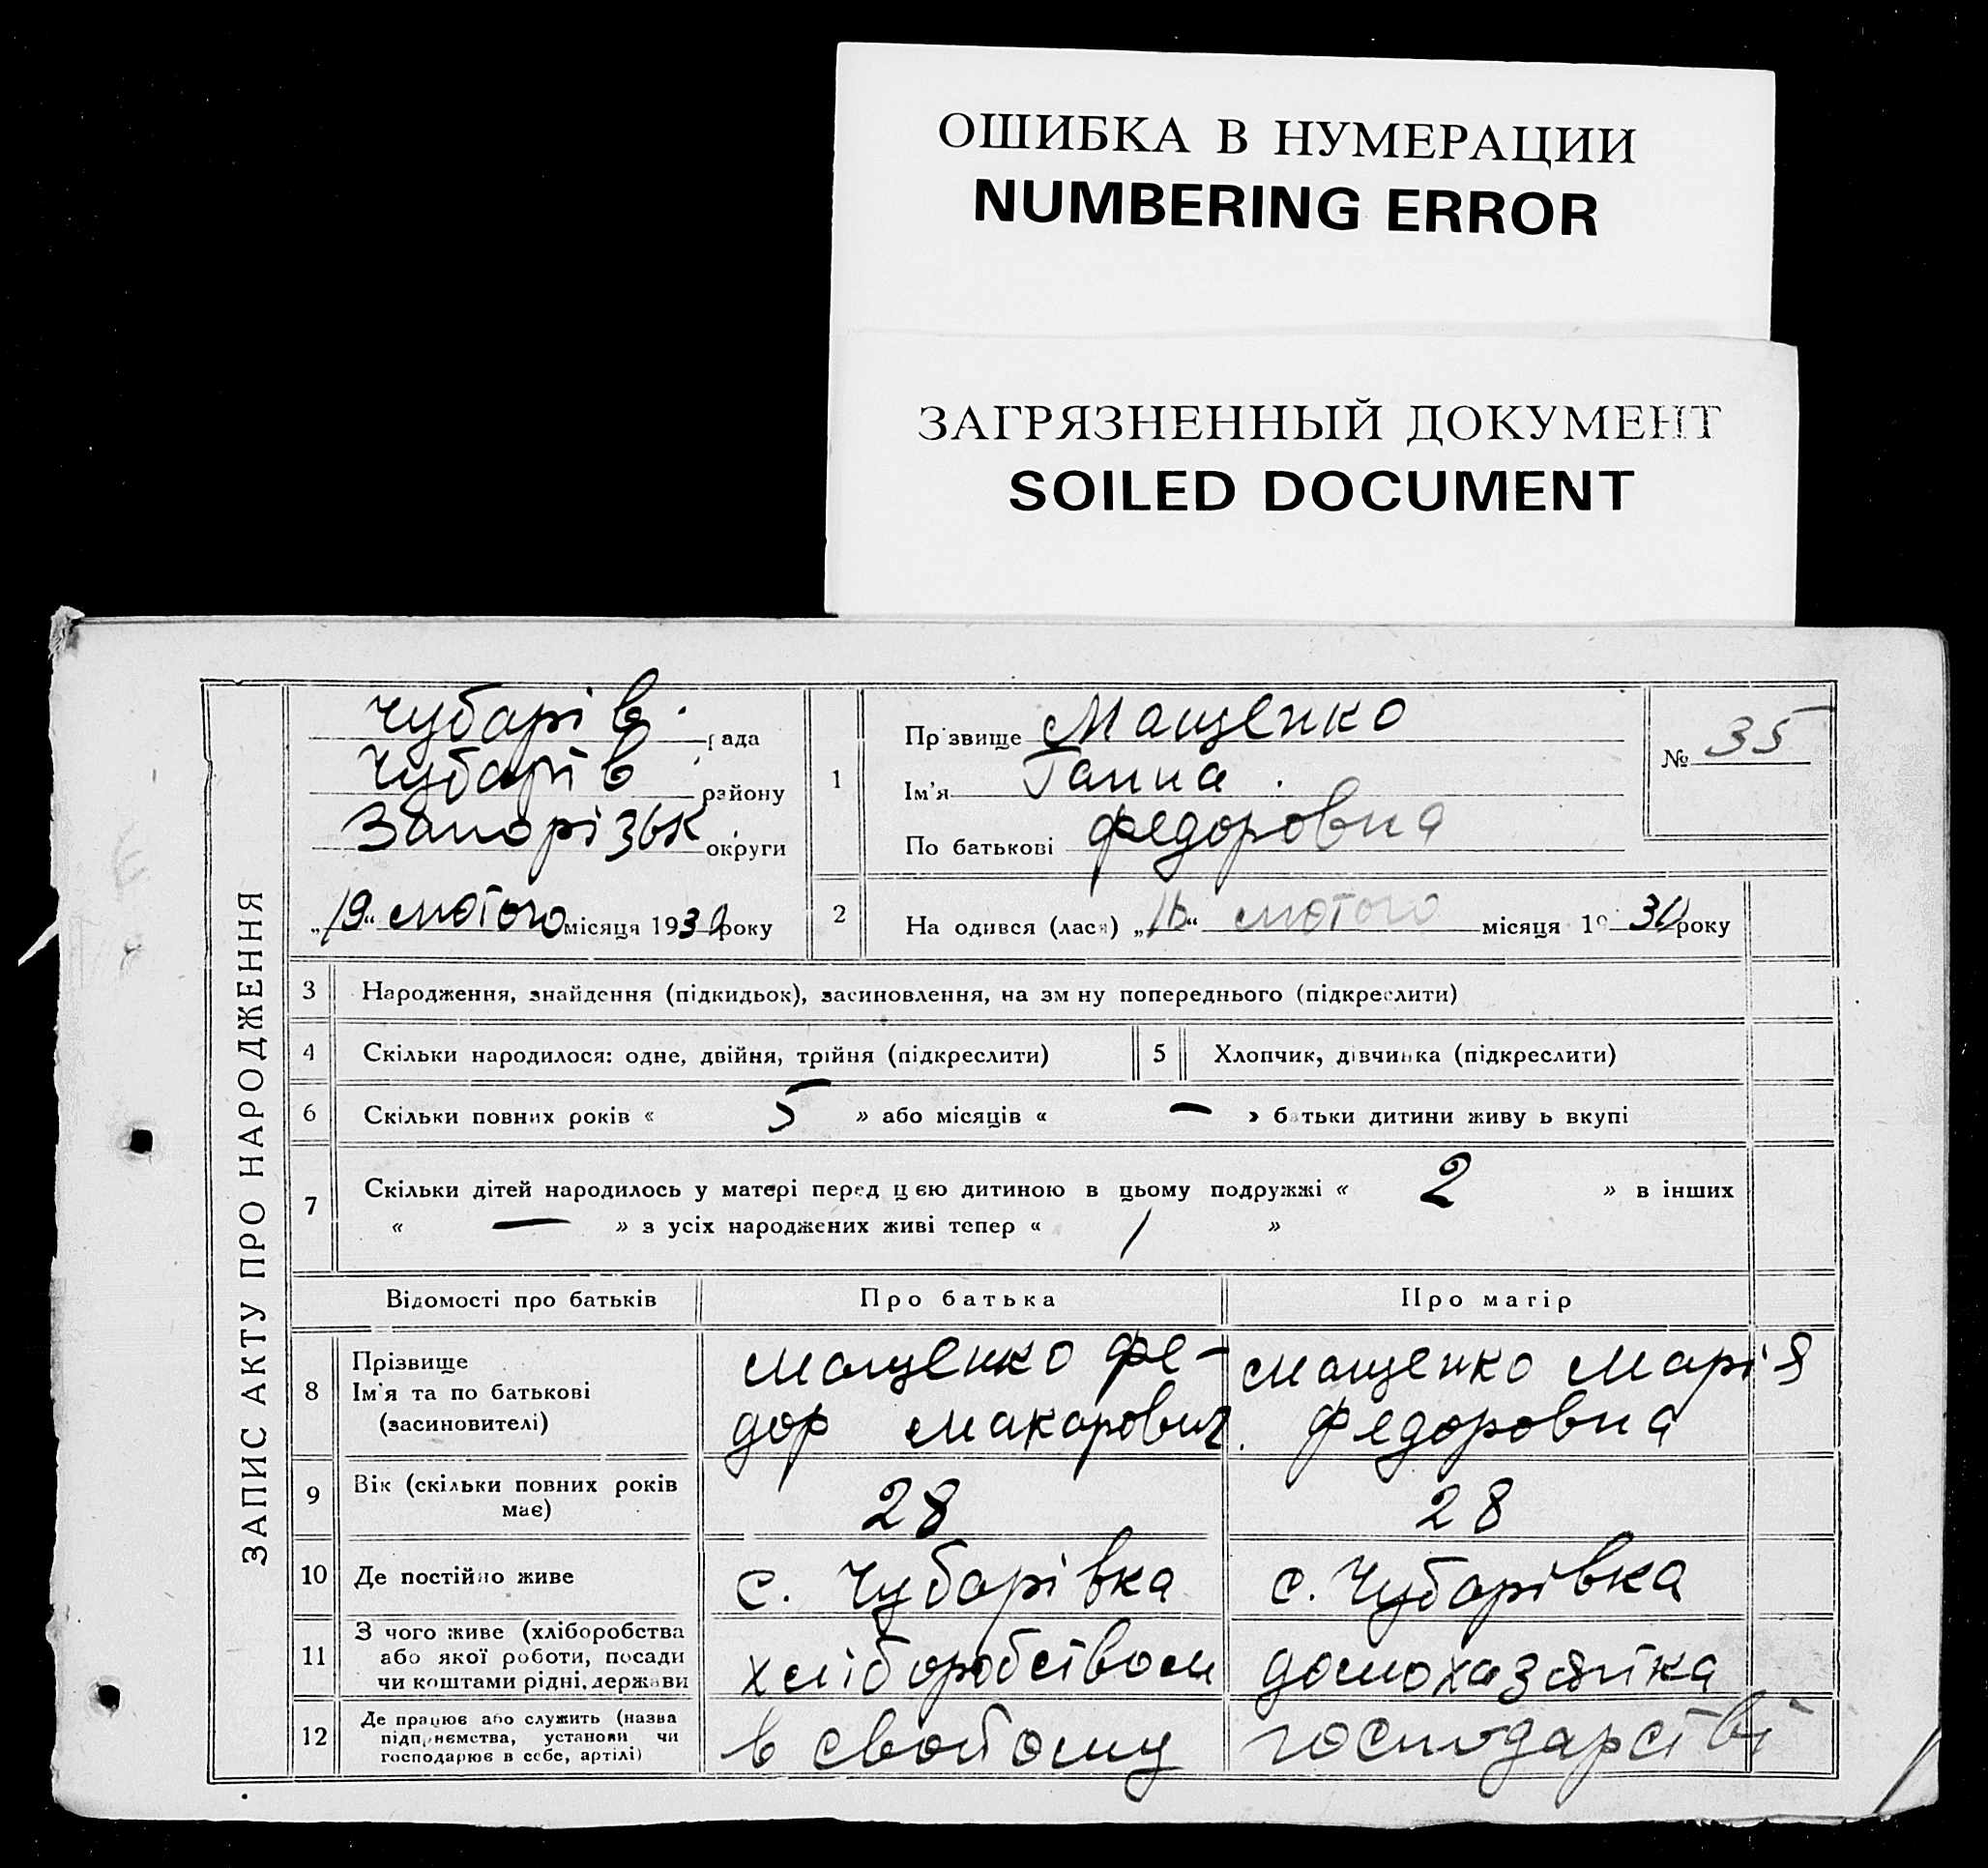 ОШИБКА В НУМЕРАЦИИ
NUMBERING ERROR
ЗАГРЯЗНЕННЫЙ ДОКУМЕНТ
SOILED DOCUMENT
ЗАПИС АКТУ ПРО НАРОДЖЕННЯ
Чубарів. рада
Чубарів района
Запорізьк округи
„19“ лютого місяця 1930 року
1
Прізвище Мащенко
Ім'я Ганна.
По батькові Федоровна
№ 35
2 На одився (лася) „ “ лютого місяця 19 30 року
3 Народження, знайдення (підкидьок), засиновлення, на зм ну попереднього (підкреслити)
4 Скільки народилося: одне, двійня, трійня (підкреслити) 5 Хлопчик, дівчинка (підкреслити)
6 Скільки повних років « 5 » або місяців « — » батьки дитини живу ь вкупі
7 Скільки дітей народилось у матері перед цією дитиною в цьому подружжі « 2 » в інших
« — » з усіх народжених живі тепер « 1 »
Відомості про батьків Про батька Про матір
8 Прізвище
Ім'я та по батькові
(засиновителі)
Мащенко Фе-
дор Макарович.
Мащенко Марія
Федоровна
9 Вік (скільки повних років
має)
28 28
10 Де постійно живе с. Чубарівка с. Чубарівка
11 З чого живе (хліборобства
або якої роботи, посади
чи коштами рідні, держави
хліборобством домохазяйка
12 Де працює або служить (назва
підприємства, установи чи
господарює в себе, артілі)
в свойому господарстві